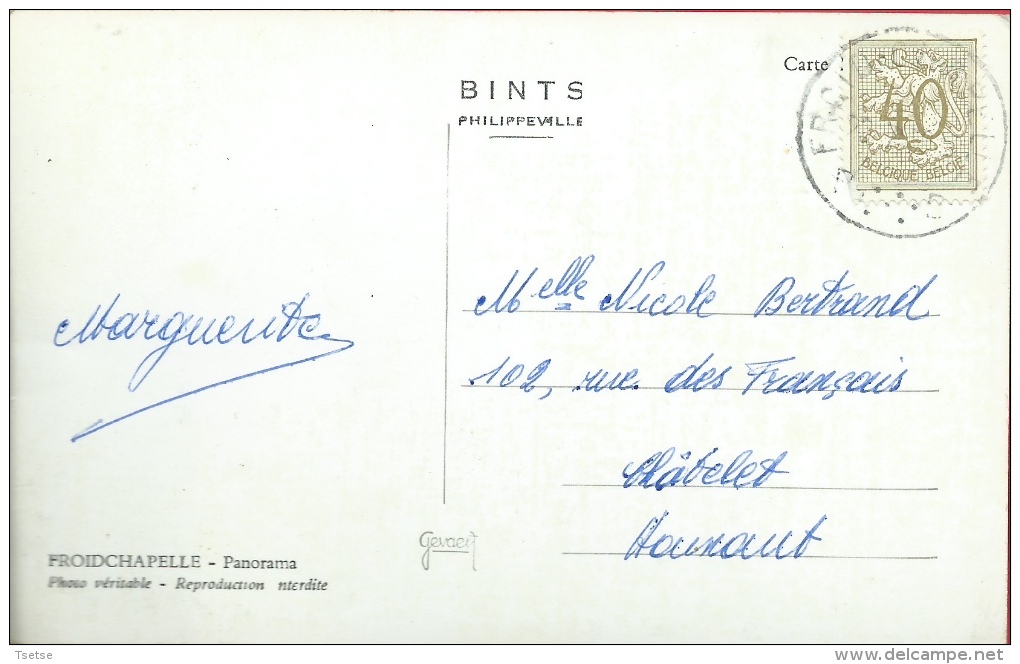 Carte
BINTS
PHILIPPEVILLE
40
BELGIQUE BELGIË
Marguerite
Melle Nicole Bertrand
102, rue des Français
Châtelet
Hainaut
Gevaert
FROIDCHAPELLE - Panorama
Photo véritable - Reproduction nterdite
Tsetse
delcampe.net